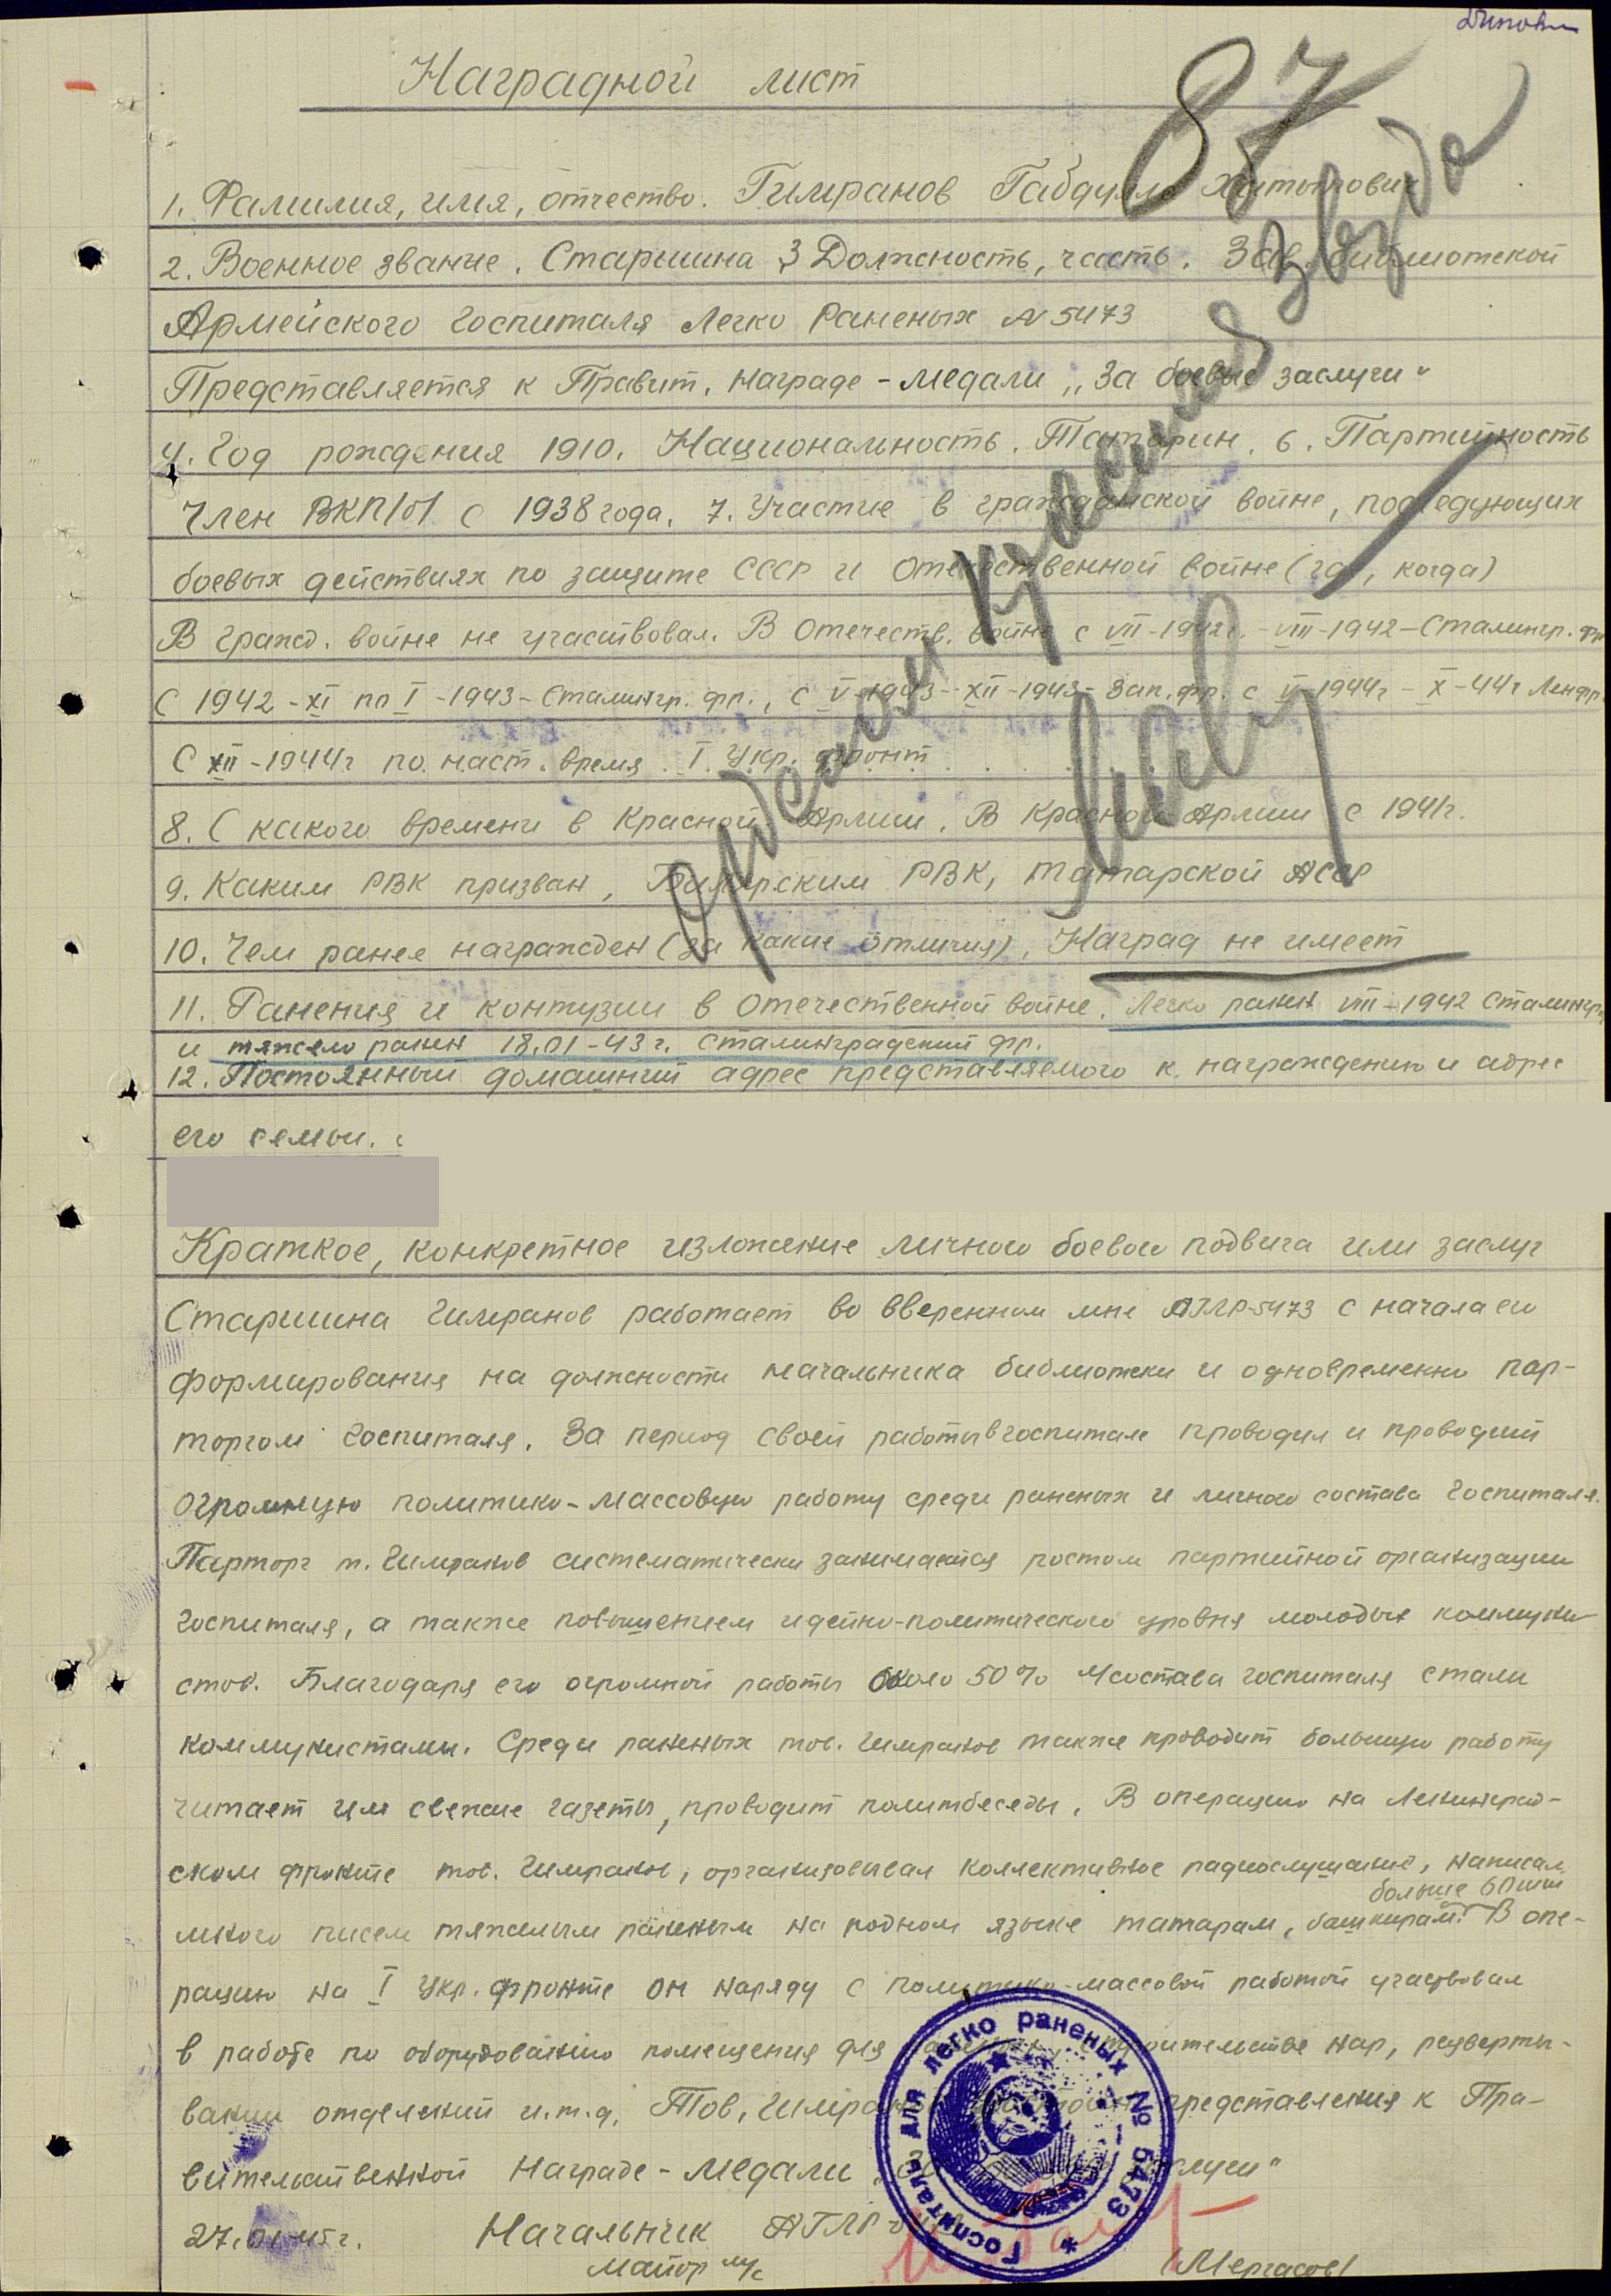 87
Наградной лист
1. Фамилия, имя, отчество. Гимранов Габдулла
2. Военное звание. Старшина 3 Должность, часть. Зав. библиотекой
Армейского Госпиталя Легко Раненых N 5473
Представляется к Правит. награде - медали „За боевые заслуги"
4. Год рождения 1910. Национальность. Татарин. 6. Партийность
Член ВКП/б/ с 1938 года. 7. Участие в гражданской войне, последующих
боевых действиях по защите СССР и Отечественной войне (где, когда)
В гражд. войне не участвовал. В Отечеств. войне с VII-1942г. - VIII-1942 - Сталингр. фр
С 1942 - XI по I - 1943 - Сталингр. фр., с V-1943 - XII-1943 - Зап. фр. с V-1944г - X-44г Ленфр.
С XII-1944г по наст. время I Укр. фронт
8. С какого времени в Красной Армии. В Красной Армии с 1941г.
9. Каким РВК призван, Билярским РВК, Татарской АССР
10. Чем ранее награжден (за какие отличия). Наград не имеет
11. Ранения и контузии в Отечественной войне. Легко ранен VIII-1942 Сталингр
и тяжело ранен 18.01-43 г. Сталинградский фр.
12. Постоянный домашний адрес представляемого к награждению и адрес
его семьи.
Орденом Красная звезда
Краткое, конкретное изложение личного боевого подвига или заслуг
Старшина Гимранов работает во вверенном мне АГЛР-5473 с начала его
формирования на должности начальника библиотеки и одновременно пар-
торгом госпиталя. За период своей работы в госпитале проводил и проводит
огромную политико-массовую работу среди раненых и личного состава госпиталя.
Парторг т. Гимранов систематически занимается ростом партийной организации
госпиталя, а также повышением идейно-политического уровня молодых коммуни-
стов. Благодаря его огромной работы около 50% л/состава госпиталя стали
коммунистами. Среди раненых тов. Гимранов также проводит большую работу
читает им свежие газеты, проводит политбеседы. В операцию на Ленинград-
ском фронте тов. Гимранов, организовывал коллективное радиослушание, написал
больше 60 шт
много писем тяжелым раненым на родном языке татарам, башкирам. В опе-
рацию на I Укр. фронте он наряду с политико-массовой работой участвовал
в работе по оборудованию помещения для строительстве нар, разверты-
вании отделений и.т.д. Тов. Гимранов достоин представления к Пра-
вительственной Награде - Медали „За боевые заслуги"
27.01.45 г. Начальник АГЛР-5473
Майор м/с /Мергасов/
Госпиталь для легко раненых № 5473